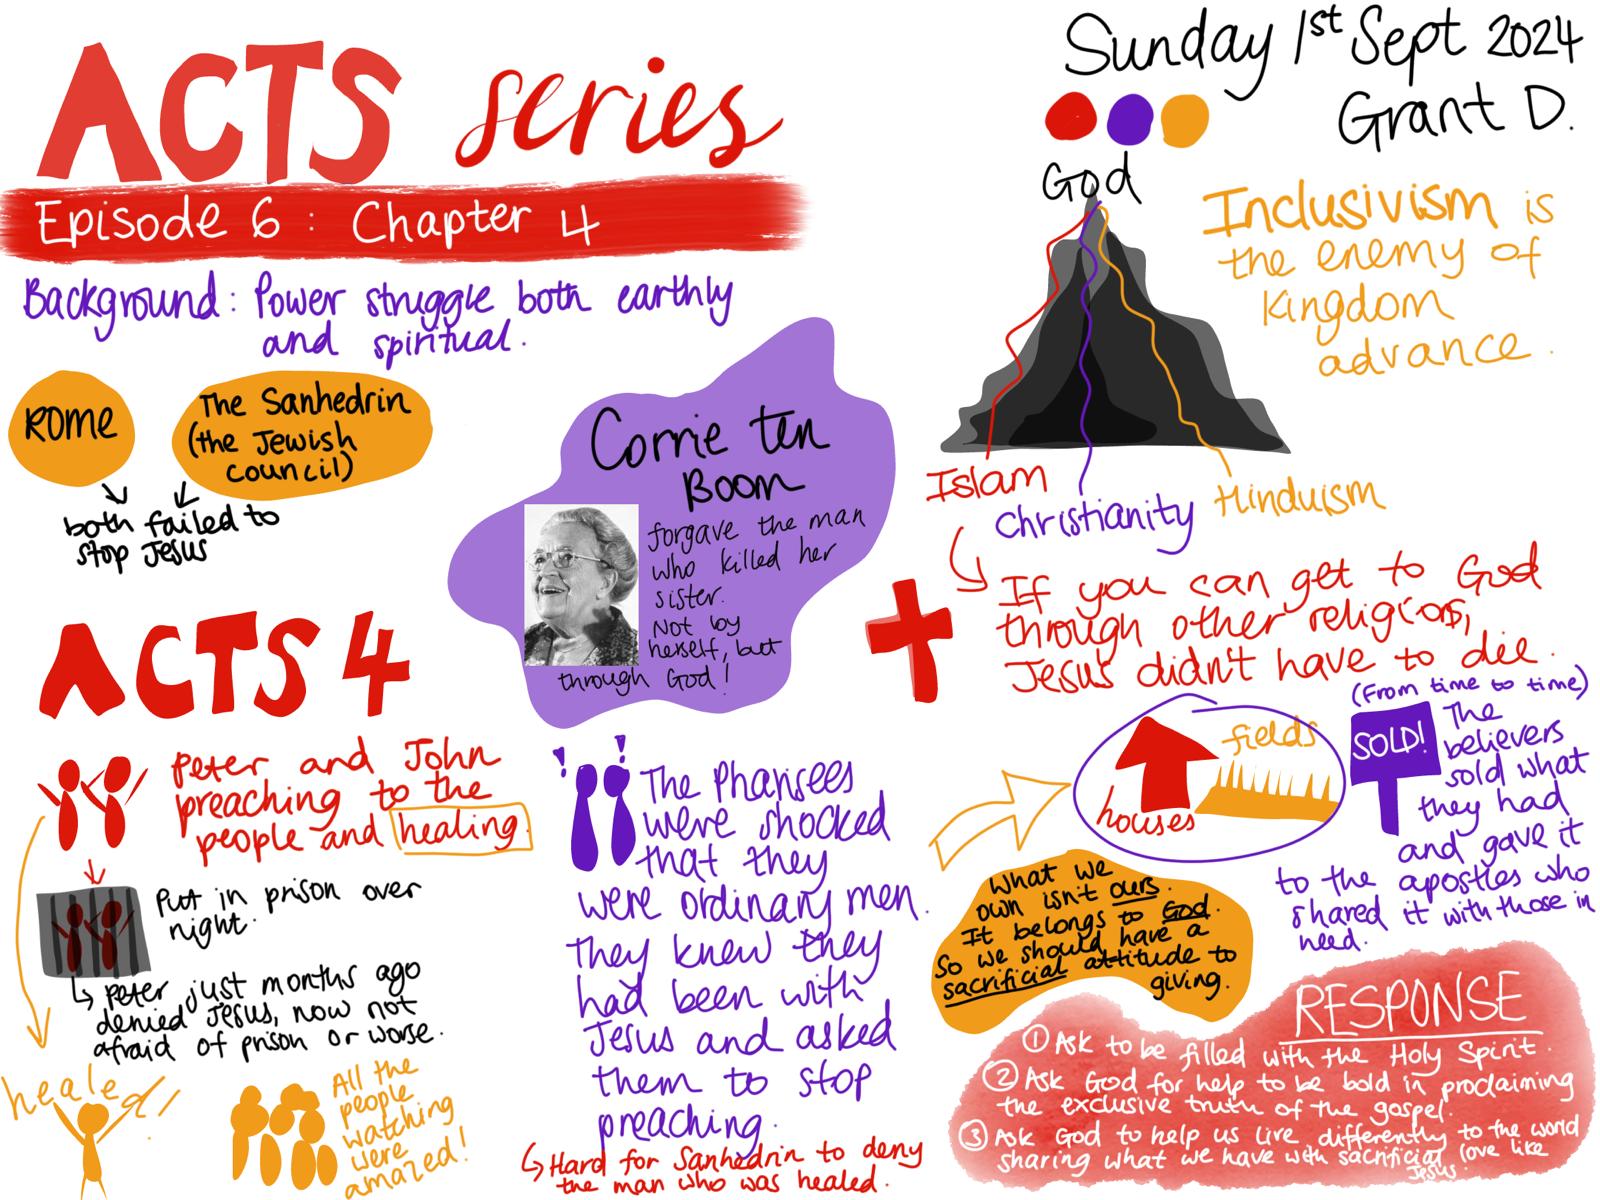 ACTS series
Episode 6 : Chapter 4
Background: Power struggle both earthly
and spiritual.
ROME
The Sanhedrin
(the Jewish
council)
both failed to
stop Jesus
Corrie ten
Boom
forgave the man
who killed her
sister.
Not by
herself, but
through God!
ACTS 4
Peter and John
preaching to the
people and healing.
Put in prison over
night.
Peter just months ago
denied Jesus, now not
afraid of prison or worse.
healed!
All the
people
watching
were
amazed!
! !
The Pharisees
were shocked
that they
were ordinary men.
They knew they
had been with
Jesus and asked
them to stop
preaching.
Hard for Sanhedrin to deny
the man who was healed.
Sunday 1st Sept 2024
Grant D.
God
Inclusivism is
the enemy of
Kingdom
advance.
Islam
Christianity
Hinduism
If you can get to God
through other religions,
Jesus didn't have to die.
houses
fields
SOLD!
(From time to time)
The
believers
sold what
they had
and gave it
to the apostles who
shared it with those in
need.
What we
own isn't ours.
It belongs to God.
So we should have a
sacrificial attitude to
giving.
RESPONSE
① Ask to be filled with the Holy Spirit.
② Ask God for help to be bold in proclaiming
the exclusive truth of the gospel.
③ Ask God to help us live differently to the world
sharing what we have with sacrificial love like
Jesus.